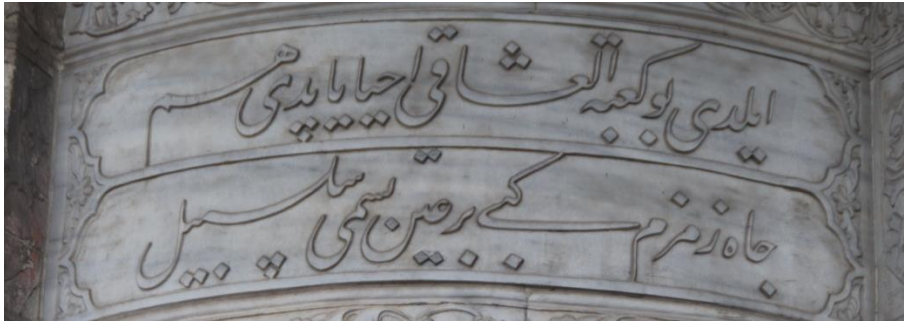 ایلدی بو کعبة العشاقی احیا یاپدی هم
جاه زمزم کبی بر عین تسمی سلسبیل